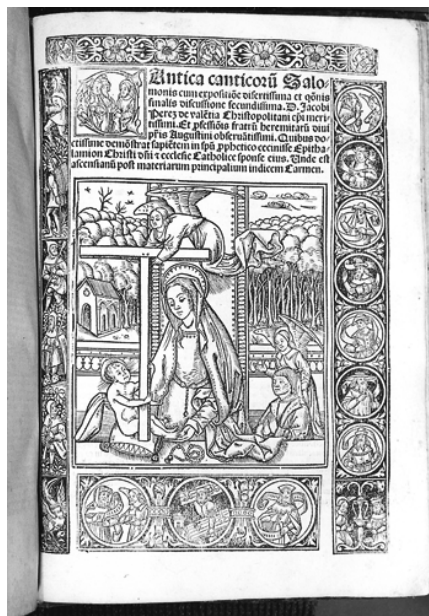 Antica canticorū Salo-
monis cum expositiōe disertissima et q̄onis
finalis discussione fecundissima. D. Jacobi
Perez de valētia Christopolitani epī meri-
tissimi. Et p̄fessiōis fratrū heremitarū diui
p̄ris Augustini obseruātissimi. Quibus do-
ctissime demōstrat sapiētem in spū p̄phetico cecinisse Epitha-
lamion Christi dn̄i et ecclesie Catholice sponse eius. Unde est
ascensianū post materiarum principalium indicem Carmen.